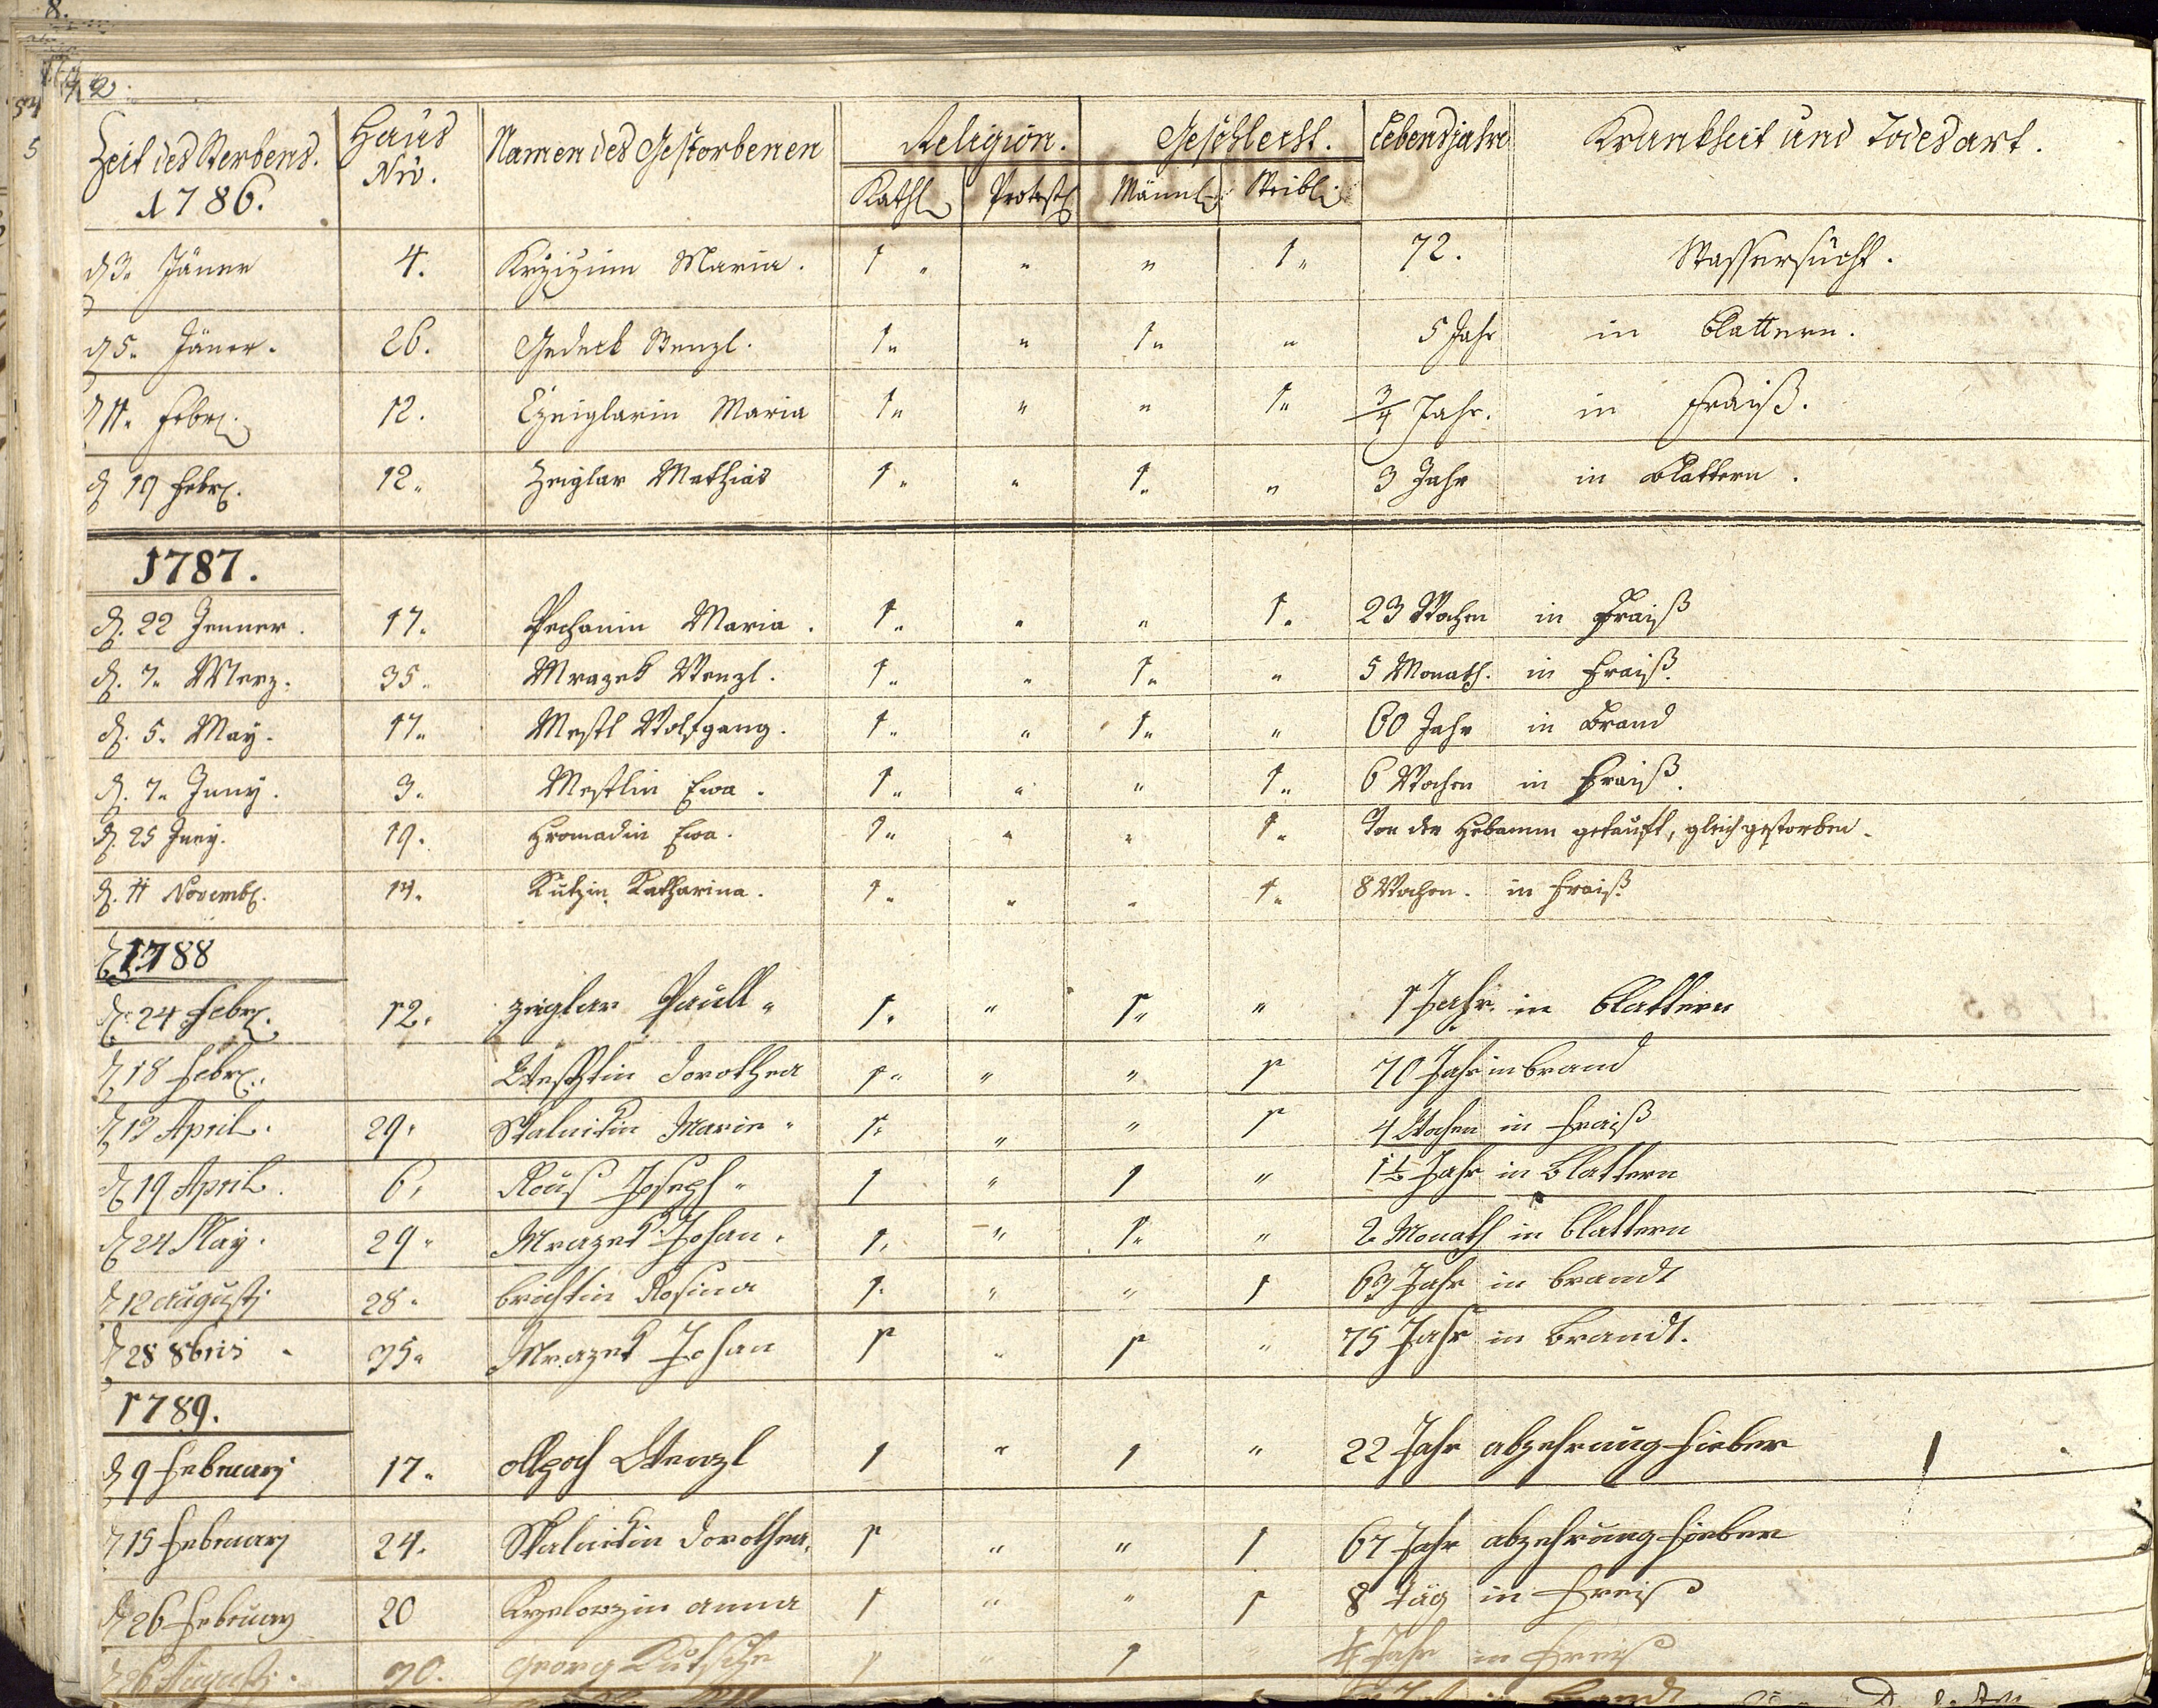 Zeit des Sterbens. Haus Nro. Namen des Gestorbenen Religion. Geschlecht. Lebensjahre Krankheit und Todesart.
1786. Kathl. Protest. Männl. Weibl.
d 3. Jäner 4. Maria. 1 " " " 1 " 72. Wassersucht.
d 5. Jäner. 26. Gedeck Wenzl. 1 " " 1 " " 5 Jahr in Blattern.
d 11. Febr. 12. Czeiglarin Maria 1 " " " 1 " 3/4 Jahr. in Fraiß.
d 19 Febr. 12. Zeiglar Mathias 1 " " 1 " " 3 Jahr in Blattern.
1787.
d. 22 Jenner. 17. Pechanin Maria. 1 " " " 1 " 23 Wochen in Fraiß
d. 7. Merz. 35. Mrazek Wenzl. 1 " " 1 " " 5 Monath. in Fraiß.
d. 5. May. 17. Mestl Wolfgang. 1 " " 1 " " 60 Jahr in Brand
d. 7. Juny. 3. Mestlin Ewa. 1 " " " 1 " 6 Wochen in Fraiß.
d. 25 Juny. 19. Hromadin Ewa. 1 " " " 1 " Von der Hebamm getauft, gleich gestorben.
d. 11 Novemb. 14. Kutzin Katharina. 1 " " " 1 " 8 Wochen. in Fraiß.
1788
d. 24 Febr. 12. zeiglar Paull " 1. " 1 " " 1 Jahr. in Blattern
d 18 Febr. Dorothea 1 " " " 1 70 Jahr in brand
d 13 April. 29. Skalnikin Marie " 1. " " 1 4 Wochen in Fraiß
d 19 April. 6. Joseph " 1 " 1 " 1 1/2 Jahr in Blattern
d 24 May. 29. Mrazek Johan. 1. " 1 " " 2 Monath in Blattern
d 12 augusti 28. brichtin Rosina 1. " " 1 63 Jahr in brandt
d 28 8bris. 35. Mrazek Johan 1 " 1 " 75 Jahr in Brandt.
1789.
d 9 Februarj 17. Wenzl 1 " 1 " 22 Jahr abzehrung fieber
d 15 Februarj 24. Skalnikin Dorothea. 1 " " 1 67 Jahr abzehrung fieber
d 26 Februarj 20 anna 1 " " 1 8 täg in Freiß
d 26 Augusti. 30. Georg 1 " 1 " Jahr in Freiß